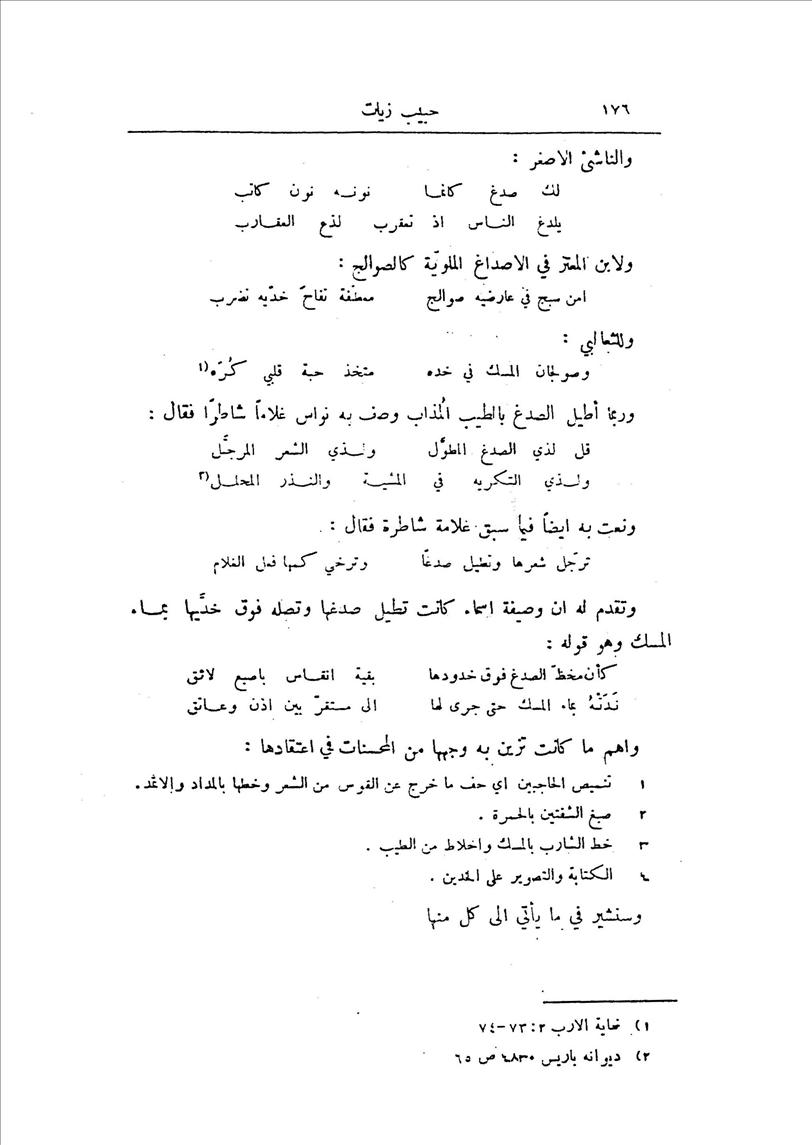 ١٧٦ حبيب زيات
والناشئ الاصغر :
لك صدغ كانما نونـه نون كاتب
يلدغ النـاس اذ تعقرب لذع العقـارب
ولابن المعتز في الاصداغ الملويّة كالصوالج :
امن سبج في عارضيه صوالج معطفة تفاحّ خدّيه تضرب
وللثعالبي :
وصولجان المسك في خده متخذ حبة قلبي كُرَه ١)
وربما أطيل الصدغ بالطيب المُذاب وصف به نواس غلاماً شاطرًا فقال :
قل لذي الصدغ المطوَّل ولـذي الشعر المرجَّل
ولـذي التكريه في المشيـة والنـذر المحلـل ٢)
ونعت به ايضاً فيما سبق غلامة شاطرة فقال :
ترجّل شعرها وتطيل صدغًا وترخي كمها فعل الغلام
وتقدم له ان وصيفة اسماء كانت تطيل صدغها وتصله فوق خدَّيها بمـاء
المسك وهو قوله :
كأن مخطّ الصدغ فوق خدودها بقية انقـاس باصبع لائق
نَدَتْهُ بماء المسك حتى جرى لها الى مستقرّ بين اذن وعـاتق
واهم ما كانت تزين به وجهها من المحسنات في اعتقادها :
١ تنميص الحاجبين اي حف ما خرج عن القوس من الشعر وخطها بالمداد والاثمد .
٢ صبغ الشفتين بالحمرة .
٣ خط الشارب بالمسك واخلاط من الطيب .
٤ الكتابة والتصوير على الخدين .
وسنشير في ما يأتي الى كل منها
١) نهاية الارب ٢ : ٧٣-٧٤
٢) ديوانه باريس ٤٨٣٠ ص ٦٥